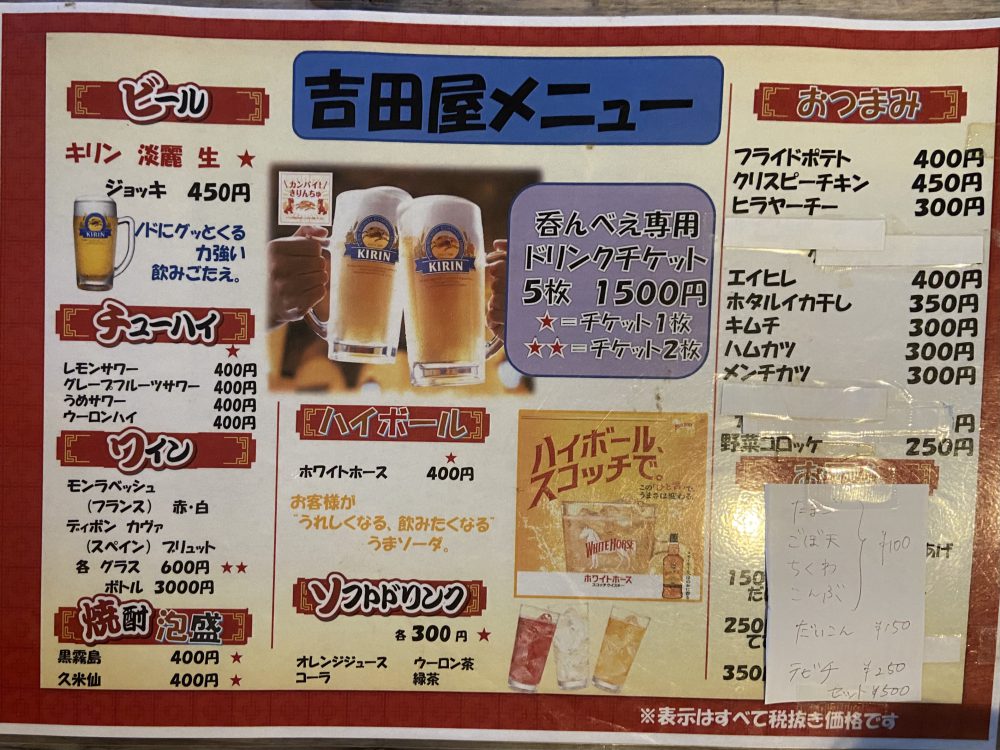 吉田屋メニュー
ビール
キリン 淡麗 生 ★
ジョッキ 450円
KIRIN
ノドにグッとくる
力強い
飲みごたえ。
チューハイ
★
レモンサワー 400円
グレープフルーツサワー 400円
うめサワー 400円
ウーロンハイ 400円
ワイン
モンラベッシュ
(フランス) 赤・白
ディボン カヴァ
(スペイン) ブリュット
各 グラス 600円 ★★
ボトル 3000円
焼酎 泡盛
黒霧島 400円 ★
久米仙 400円 ★
カンパイ!
きりんちゅ
KIRIN
KIRIN
呑んべえ専用
ドリンクチケット
5枚 1500円
★=チケット1枚
★★=チケット2枚
ハイボール
★
ホワイトホース 400円
お客様が
"うれしくなる、飲みたくなる"
うまソーダ。
ハイボール、
スコッチで。
この「ひと言」で、
うまさは変わる。
WHITE HORSE
ホワイトホース
スコッチウイスキー
ソフトドリンク
各300円 ★
オレンジジュース ウーロン茶
コーラ 緑茶
おつまみ
フライドポテト 400円
クリスピーチキン 450円
ヒラヤーチー 300円
エイヒレ 400円
ホタルイカ干し 350円
キムチ 300円
ハムカツ 300円
メンチカツ 300円
円
野菜コロッケ 250円
あげ
150
250
350
たまご
ごぼ天
ちくわ
こんぶ
¥100
だいこん ¥150
テビチ ¥250
セット ¥500
※表示はすべて税抜き価格です